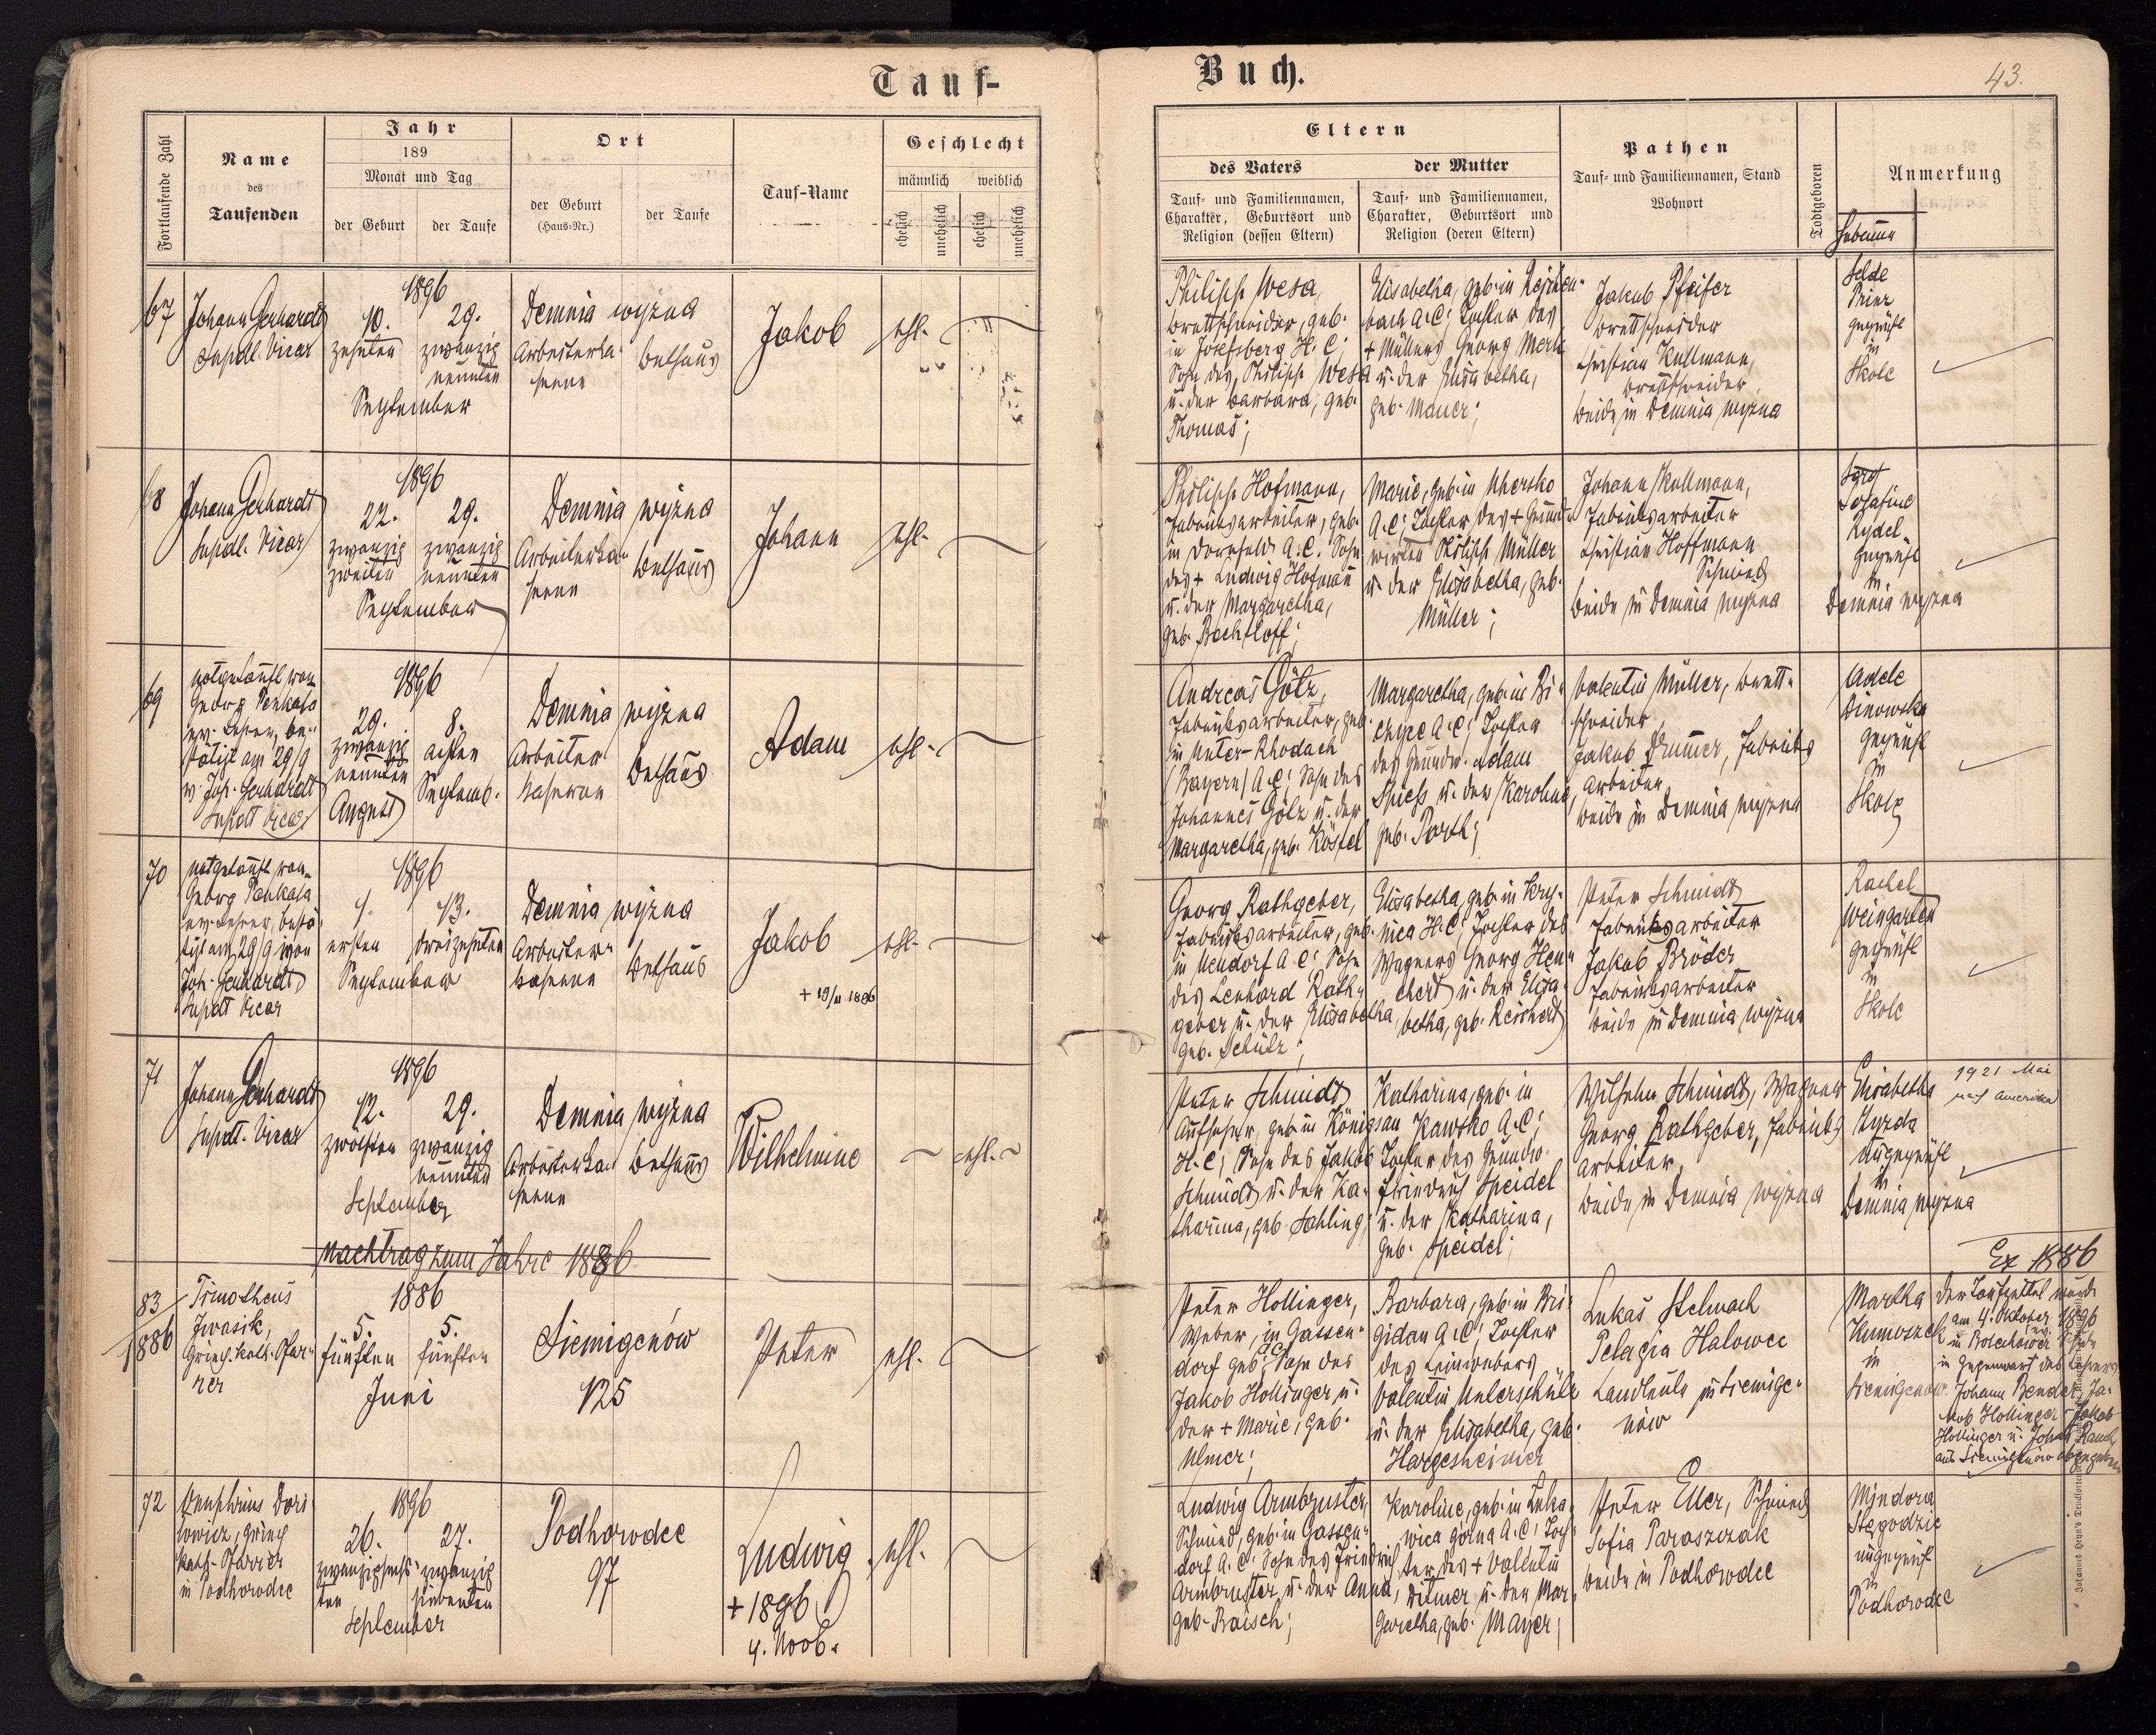 Tauf-
Buch.
43.
Fortlaufende Zahl
Name
des
Taufenden
Jahr
189
Monat und Tag
der Geburt
der Taufe
Ort
der Geburt
(Haus-Nr.)
der Taufe
Tauf-Name
Geschlecht
männlich
weiblich
ehelich
unehelich
ehelich
unehelich
Eltern
des Vaters
der Mutter
Tauf- und Familiennamen,
Charakter, Geburtsort und
Religion (dessen Eltern)
Tauf- und Familiennamen,
Charakter, Geburtsort und
Religion (deren Eltern)
Pathen
Tauf- und Familiennamen, Stand
Wohnort
Todtgeboren
Anmerkung
67
Johann Gerhardt
Supdt. Vicar
1896
10.
zehnten
29.
zwanzig
neunten
September
Demnia wyżna
Arbeiterka-
serne
Bethaus
Jakob
ehl.
Philipp Wesa,
Brettschneider, geb.
in Josefsberg H. C;
Sohn des Philipp Wesa
u. der Barbara, geb.
Thomas;
Elisabetha, geb. in
A.C; Tochter des
+ Müllers Georg Merk
u. der Elisabetha,
geb. Mauer;
Jakob Pfeifer
Brettschneider
Christian Kullmann,
Brettschneider,
beide in Demnia wyżna
geprüft
in
Skole
68
Johann Gerhardt
Supdt. Vicar
1896
22.
zwanzig
zweiten
29.
zwanzig
neunten
September
Demnia wyżna
Arbeiterka-
serne
Bethaus
Johann
ehl.
Philipp Hofmann,
Fabriksarbeiter, geb.
in Dornfeld A.C. Sohn
des + Ludwig Hofmann
u. der Margaretha,
geb. Bachtloff;
Marie, geb. in Uhersko
A.C; Tochter des + Grund-
wirten Philipp Müller
u. der Elisabetha, geb.
Müller;
Johann Kullmann,
Fabriksarbeiter
Christian Hoffmann
Schmied
beide in Demnia wyżna
Josefine
Rydel
geprüft
in
Demnia wyżna
69
notgetauft von
Georg Penkala
ev. Lehrer, be-
stätigt am 29/9
v. Joh. Gerhardt
Supdt Vicar
1896
29.
zwanzig
neunten
August
8.
achten
Septemb.
Demnia wyżna
Arbeiter
kaserne
Bethaus
Adam
ehl.
Andreas Götz,
Fabriksarbeiter, geb.
in Unter-Rhodach
(Bayern) A.C; Sohn des
Johannes Götz u. der
Margaretha, geb. Köstel
Margaretha, geb. in Bi-
czyce A.C; Tochter
des Grundw. Adam
Spiess u. der Karolina,
geb. Porth;
Valentin Müller, Brett-
schneider,
Jakob Drummer, Fabriks
arbeiter
beide in Demnia wyżna
Adele
Dinowska
geprüft
in
Skole
70
notgetauft von
Georg Penkala
ev. Lehrer, bestä-
tigt am 29/9 von
Joh. Gerhardt
Supdt Vicar
1896
1.
ersten
13.
dreizehnten
September
Demnia wyżna
Arbeiter-
kaserne
Bethaus
Jakob
+ 19/11 1896
ehl.
Georg Rathgeber,
Fabriksarbeiter, geb.
in Neudorf A.C; Sohn
des Lenhard Rath-
geber u. der Elisabetha
geb. Schulz;
Elisabetha, geb. in Kry-
nica H.C; Tochter des
Wagners Georg Hen-
chert u. der Elisa-
betha, geb. Reichert
Peter Schmidt
Fabriksarbeiter
Jakob Bröder
Fabriksarbeiter
beide in Demnia wyżna
Rachel
Weingarten
geprüft
in
Skole
71
Johann Gerhardt
Supdt. Vicar
1896
12.
zwölften
29.
zwanzig
neunten
September
Demnia wyżna
Arbeiterka-
serne
Bethaus
Wilhelmine
ehl.
Peter Schmidt,
Aufseher, geb. in Königsau
H.C; Sohn des Jakob
Schmidt u. der Ka-
tharina, geb. Schling;
Katharina, geb. in
Kawsko A.C;
Tochter des Grundw.
Friedrich Speidel
u. der Katharina,
geb. Speidel;
Wilhelm Schmidt, Wagner
Georg Rathgeber, Fabriks
arbeiter,
beide in Demnia wyżna
Elisabetha
Kyrda
ungeprüft
in
Demnia wyżna
1921 Mai
nach Amerika
Nachtrag zum Jahre 1886
Ex 1886
83/1886
Timotheus
Iwasik,
Griech. kath. Pfar-
rer
1886
5.
fünften
5.
fünften
Juni
Siemigenów
125
Peter
ehl.
Peter Hollinger,
Weber, in Gassen-
dorf geb. A.C; Sohn des
Jakob Hollinger u.
der + Marie, geb.
Ulmer;
Barbara, geb. in Bri-
gidau A.C; Tochter
des Leinwebers
Valentin Unterschütz
u. der Elisabetha, geb.
Hargesheimer
Lukas Stelmach
Pelagia Halowec
Landleute in Siemige-
nów
Martha
in
Siemigenów.
Der Taufzettel wurde
am 4. Oktober 1896
in Bolechów
in Gegenwart des Lehrers
Johann Bender, Ja-
kob Hollinger
Hollinger u. Johann Rauch
aus Siemigenów abgegeben
72
Onuphrius Dori
lowicz, griech
kath. Pfarrer
in Podhorodce
1896
26.
zwanzigsechs-
ten
27.
zwanzig
siebenten
September
Podhorodce
97
Ludwig
+ 1896
4. Novb.
ehl.
Ludwig Armbruster,
Schmied, geb. in Gassen-
dorf A.C; Sohn des Friedrich
Armbruster u. der Anna,
geb. Raisch;
Karoline, geb. in Luka-
wica górna A.C; Toch-
ter des + Valentin
Ditmer u. der Mar-
garetha, geb. Mayer;
Peter Eller, Schmied
Sofia Paraszczak
beide in Podhorodce
ungeprüft
in
Podhorodce